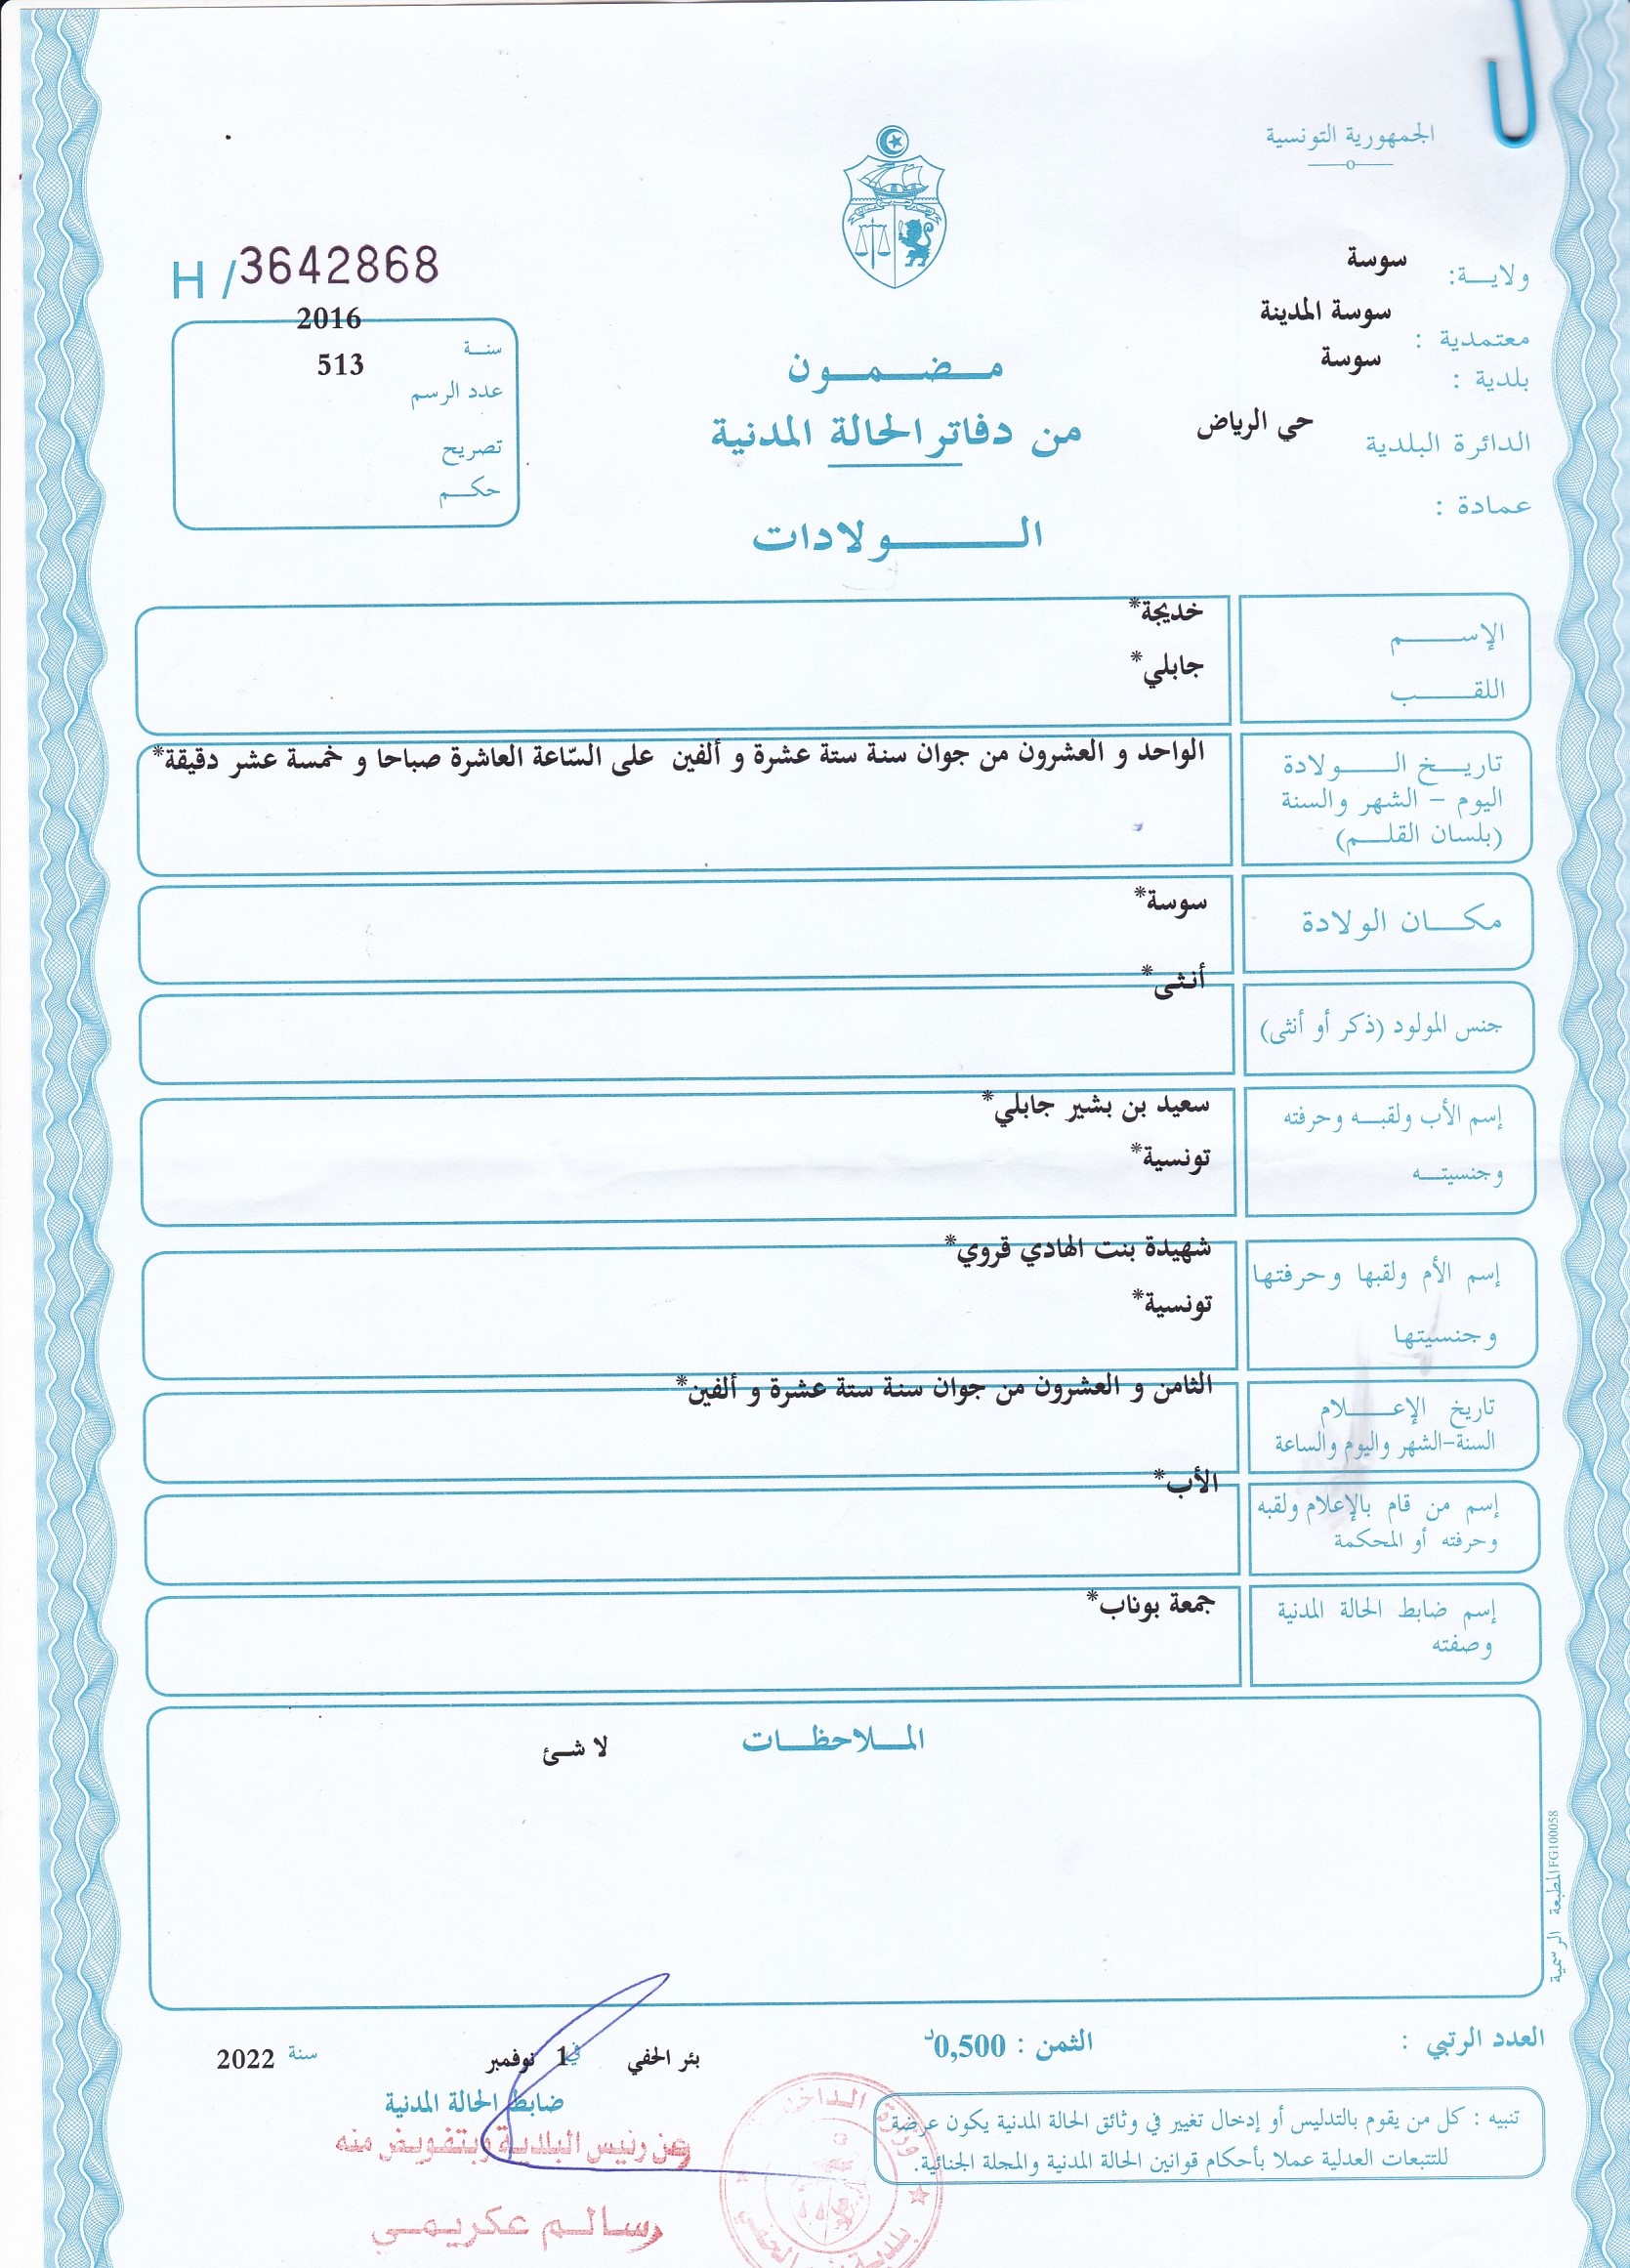 الجمهورية التونسية
ولايــة: سوسة
معتمدية : سوسة المدينة
بلدية : سوسة
الدائرة البلدية حي الرياض
عمادة :
H / 3642868
سنــة 2016
عدد الرسم 513
تصريح
حكــم
مـضـمـون
من دفاتر الحالة المدنية
الـــولادات
الإســـم خديجة*
اللقـــب جابلي*
تاريــخ الــولادة
اليوم – الشهر والسنة
(بلسان القلــم)
الواحد و العشرون من جوان سنة ستة عشرة و ألفين على السّاعة العاشرة صباحا و خمسة عشر دقيقة*
مكــان الولادة سوسة*
جنس المولود (ذكر أو أنثى) أنثى*
إسم الأب ولقبــه وحرفته سعيد بن بشير جابلي*
وجنسيتــه تونسية*
إسم الأم ولقبها وحرفتها شهيدة بنت الهادي قروي*
وجنسيتها تونسية*
تاريخ الإعــلام
السنة-الشهر واليوم والساعة
الثامن و العشرون من جوان سنة ستة عشرة و ألفين*
إسم من قام بالإعلام ولقبه
وحرفته أو المحكمة
الأب*
إسم ضابط الحالة المدنية
وصفته
جمعة بوناب*
المــلاحظــات
لا شــئ
المطبعة الرسمية FG100058
العدد الرتبي :
الثمن : 0,500د
بئر الحفي في 1 نوفمبر سنة 2022
ضابط الحالة المدنية
عن رئيس البلدية وبتفويض منه
سالم عكريمي
تنبيه : كل من يقوم بالتدليس أو إدخال تغيير في وثائق الحالة المدنية يكون عرضة
للتتبعات العدلية عملا بأحكام قوانين الحالة المدنية والمجلة الجنائية.
وزارة الداخلية
بلدية بئر الحفي